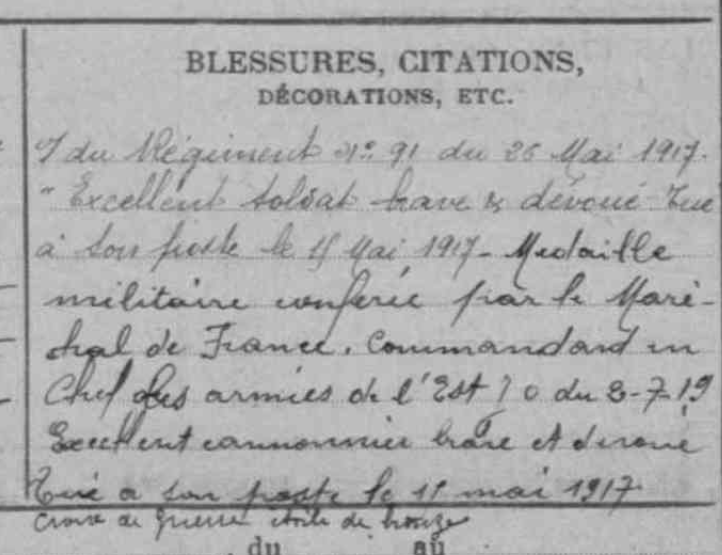 BLESSURES, CITATIONS,
DÉCORATIONS, ETC.
du Régiment N° 91 du 26 Mai 1917.
"Excellent soldat brave & dévoué Tué
à son poste le Mai 1917 - Medaille
militaire conferée par le Maré-
chal de France. Commandant en
Chef des armées de l'Est J O du 3-7-19
Excellent cannonnier brave et devoué
Tué a son poste le mai 1917
Croix de guerre étoile de bronze
du au